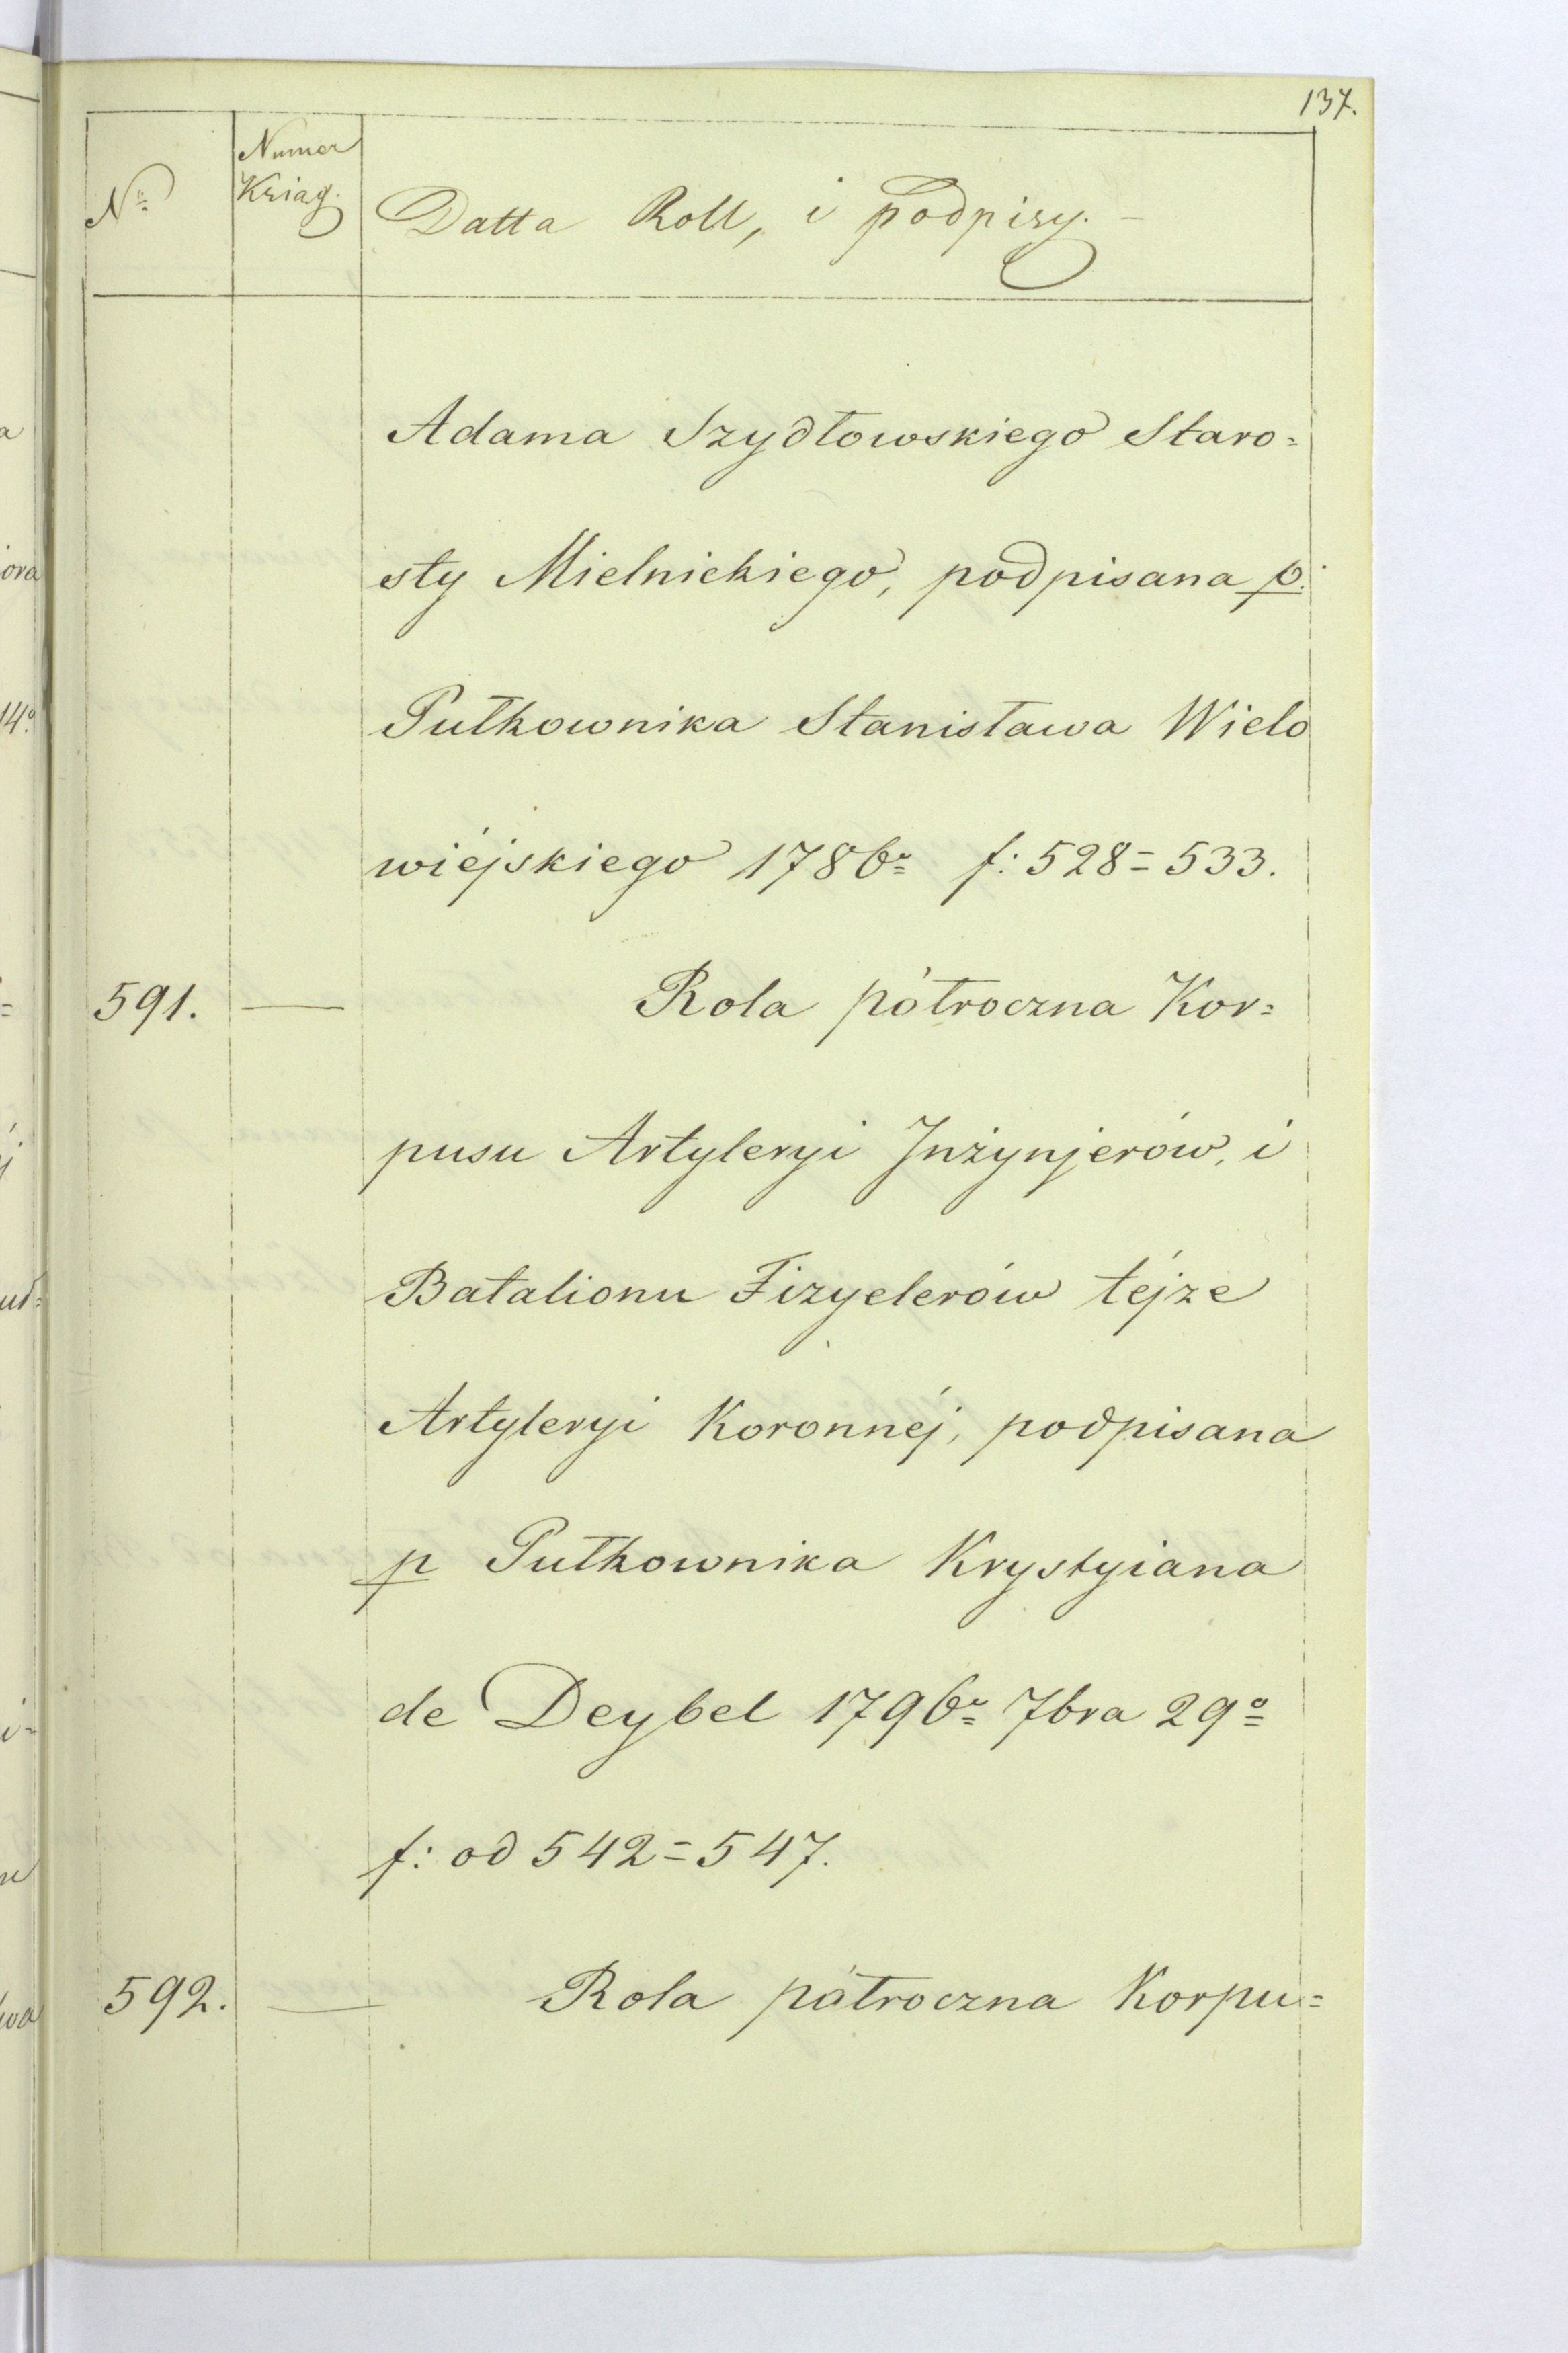 137.
Nº
Numer
Ksiąg.
Datta Roll, i podpisy. –
Adama Szydłowskiego Staro=
sty Mielnickiego, podpisana p.
Pułkownika Stanisława Wielo
wiéjskiego 1786º f: 528=533.
591. — Rola półroczna Kor=
pusu Artyleryi Inżynjerów, i
Batalionu Fizyelerów téjże
Artyleryi Koronnéj, podpisana
p Pułkownika Krystyiana
de Deybel 1796º 7bra 29º
f: od 542=547.
592. — Rola półroczna Korpu=